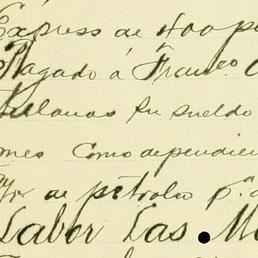 Express de 400 p
Pagado á Franco.
su sueldo
mes como dependien
de petroleo p.a
Labor Las M